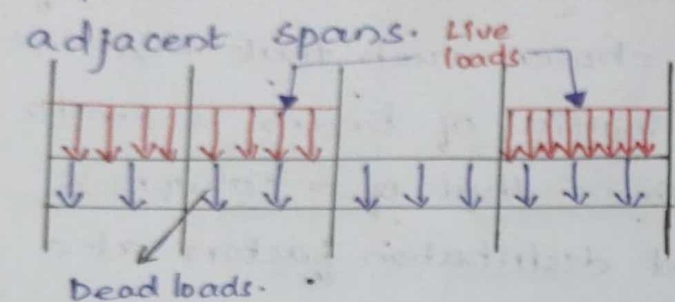 adjacent spans. Live
loads
Dead loads.